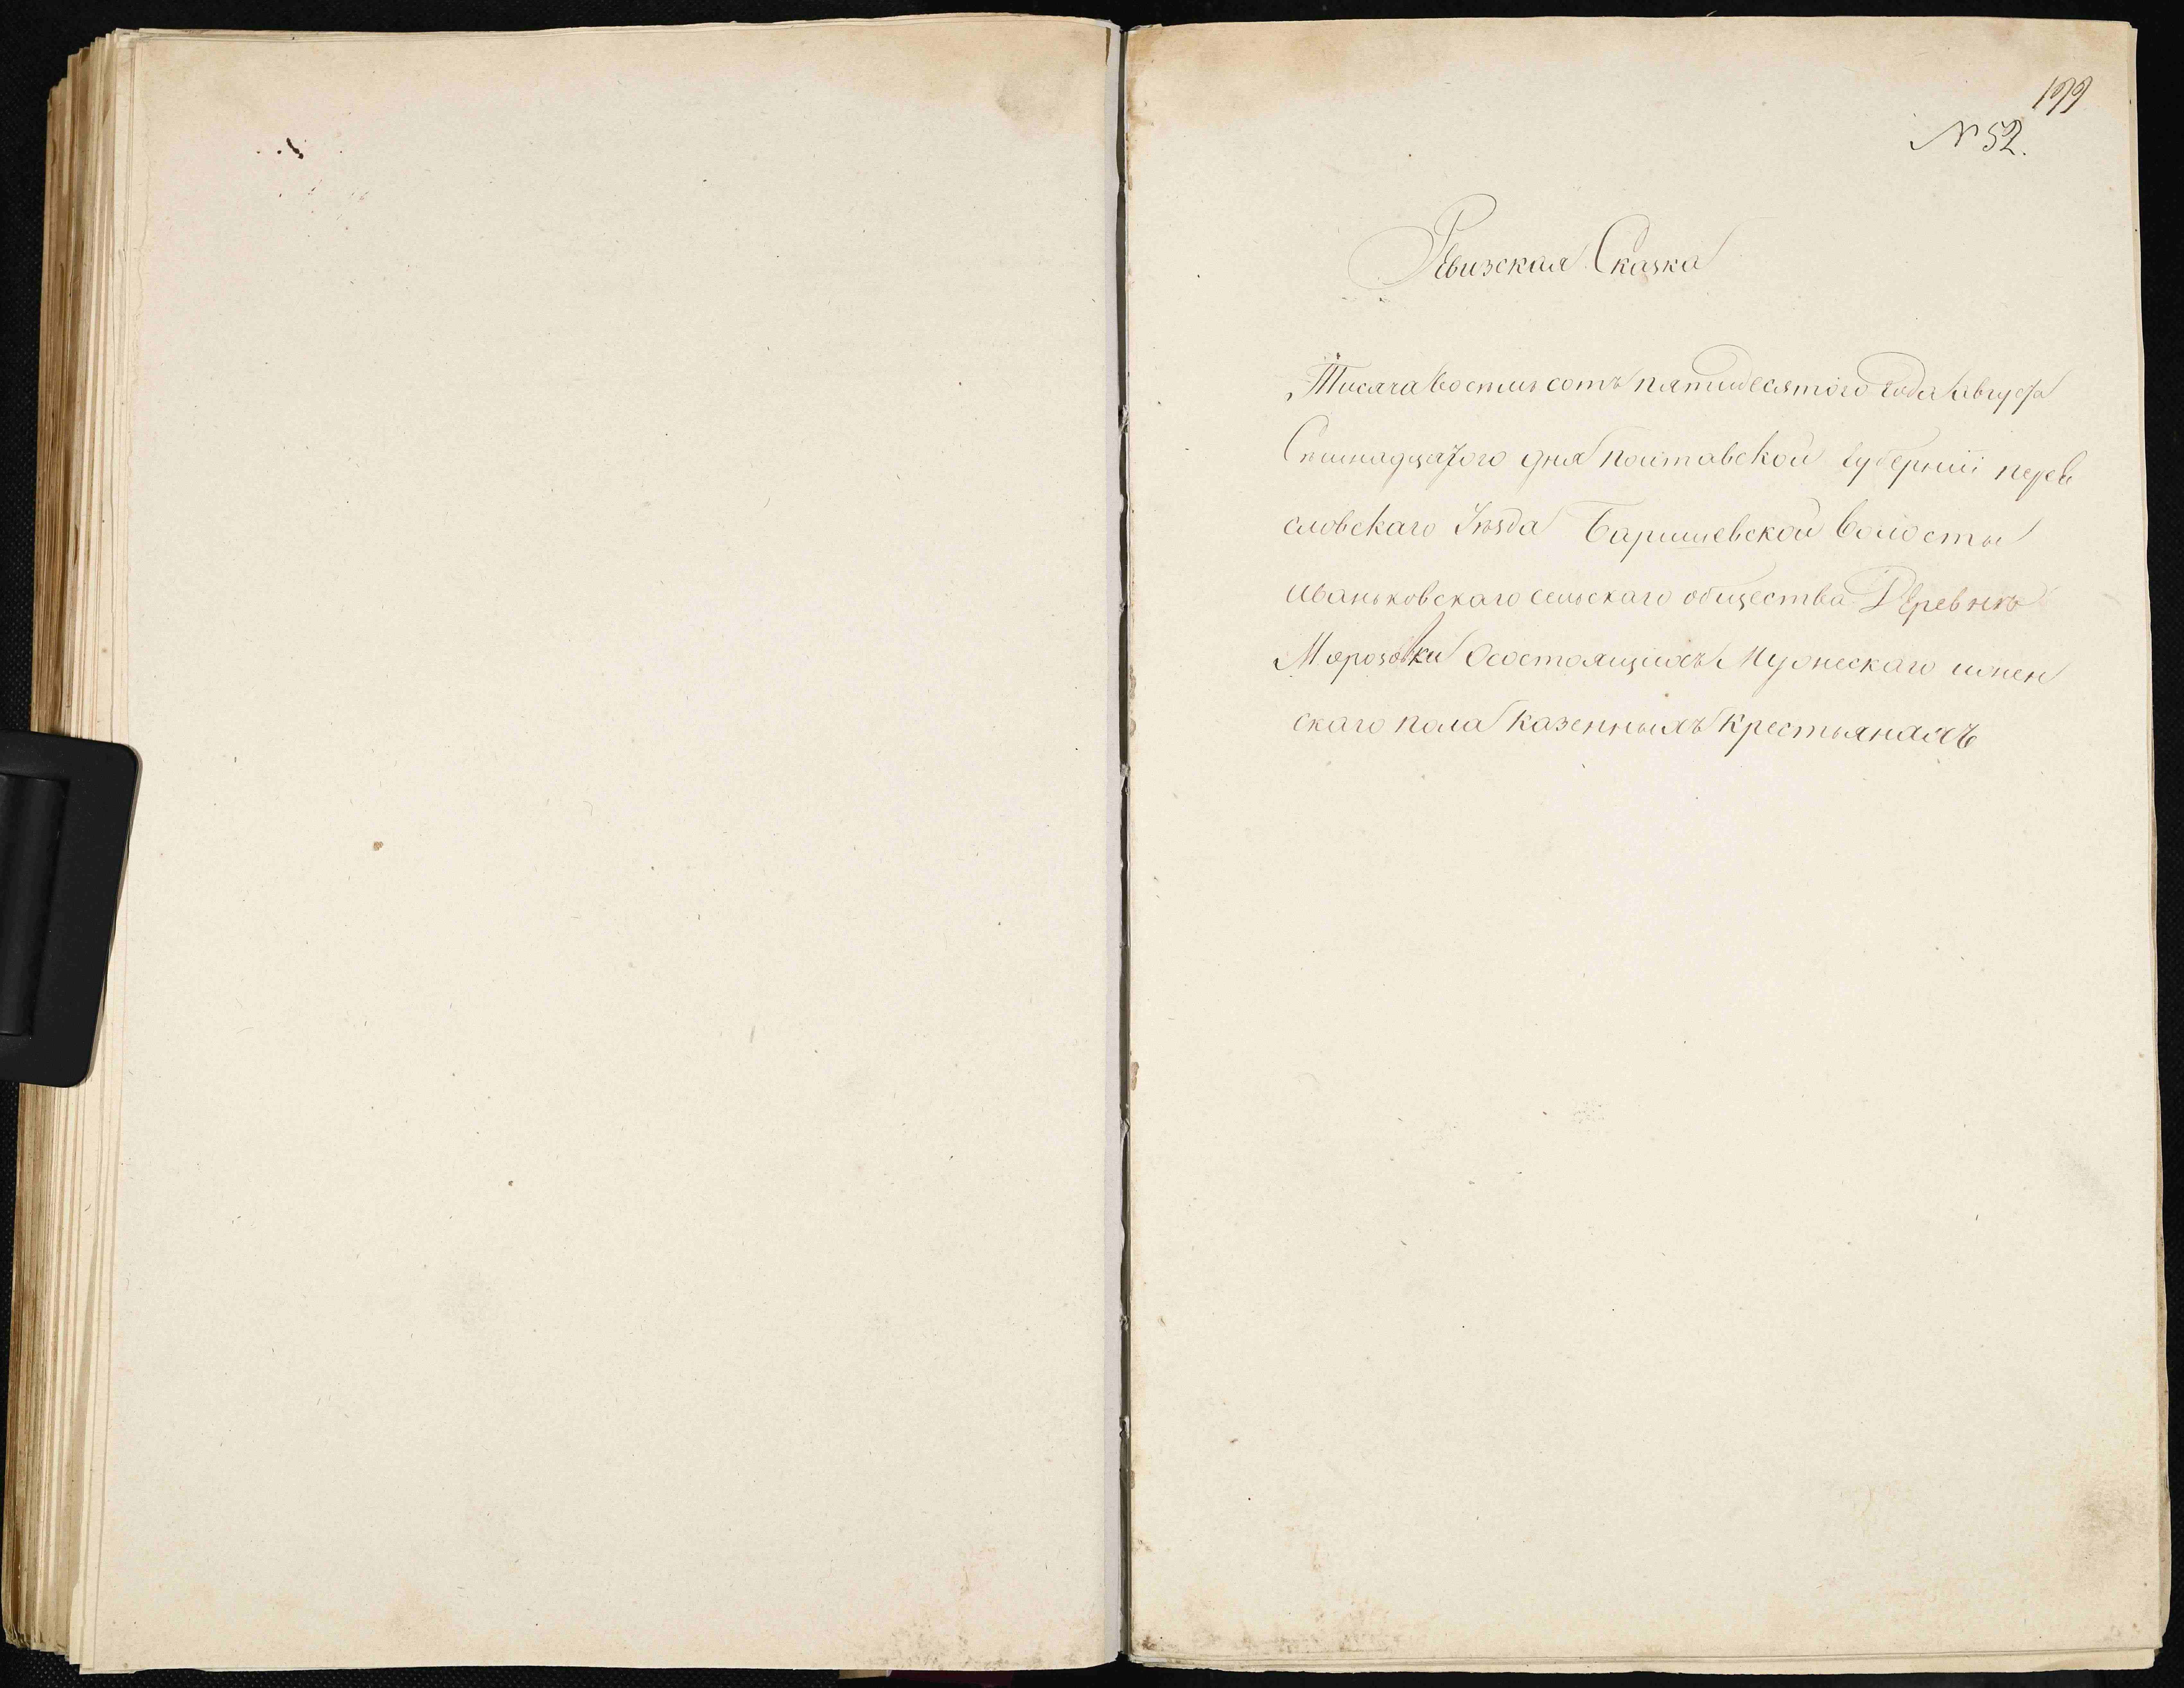 199
№ 52.
Ревизская Сказка
Тисяча восемь сотъ пятидесятого года августа
Семнадцятого дня полтавской губернии перея
словского Уезда Баришевской волосты
иваньковскаго сельскаго общества Деревнѣ
Морозовки Осостоящихъ Мужескаго иженн
скаго пола казенныхъ крестьянахъ